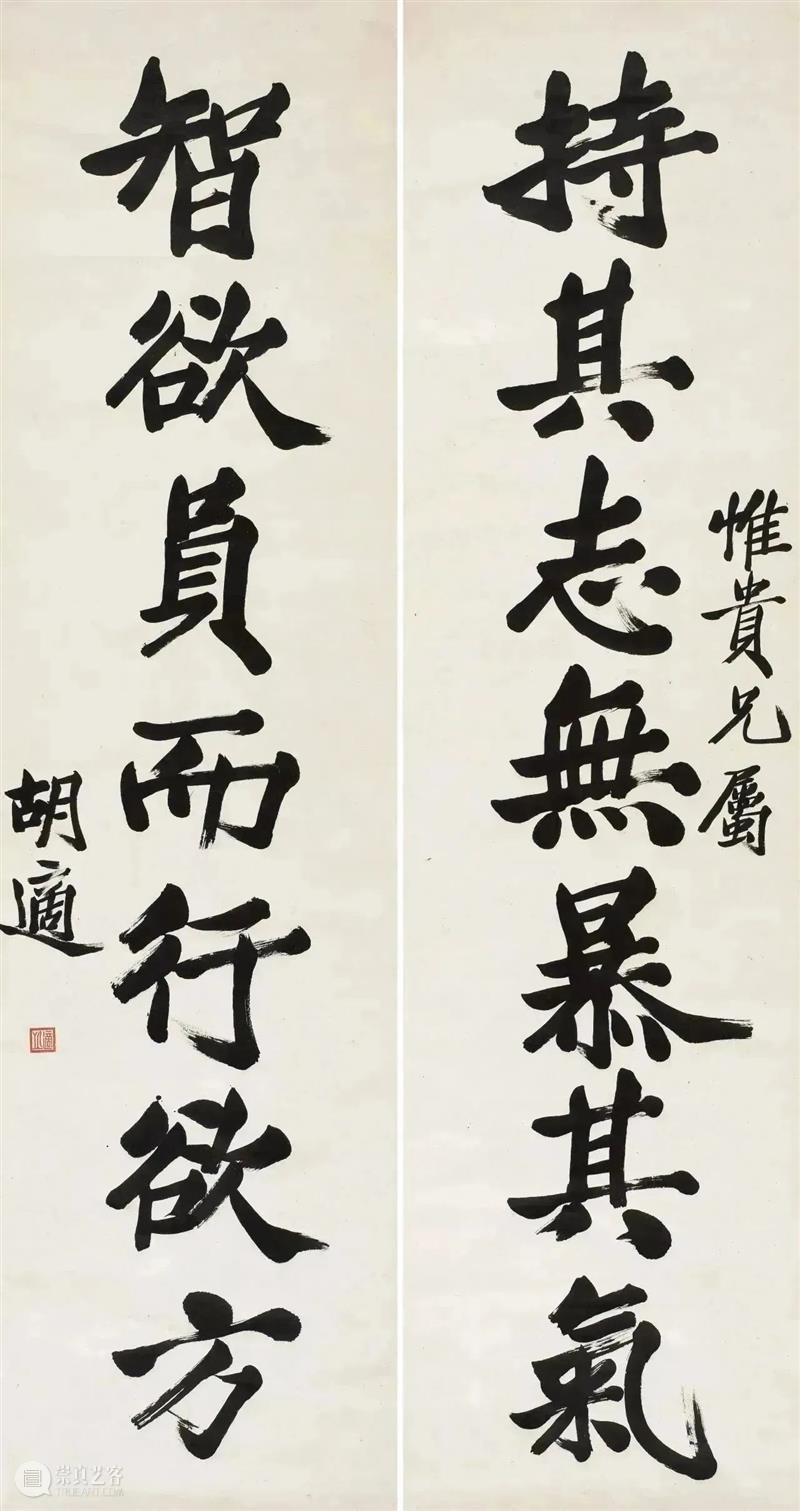 惟貴兄屬
持其志無暴其氣
智欲員而行欲方
胡適
崇真艺客
TRUEART.COM